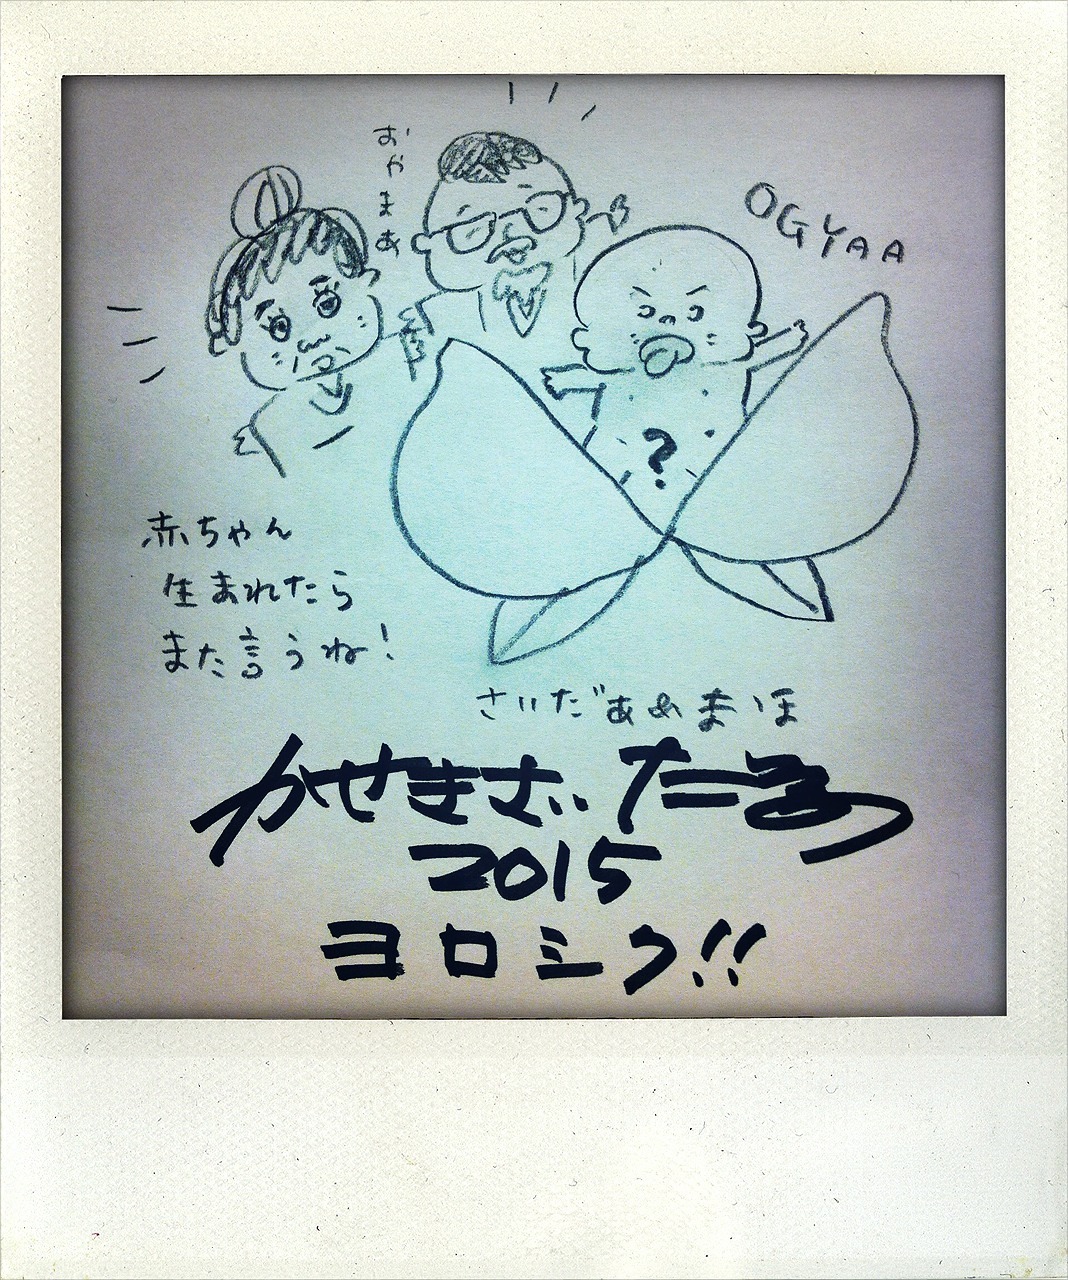 おやまあ
OGYAA
?
赤ちゃん
生まれたら
また言うね!
さいだあぬまほ
かせきさいだぁ
2015
ヨロシク!!